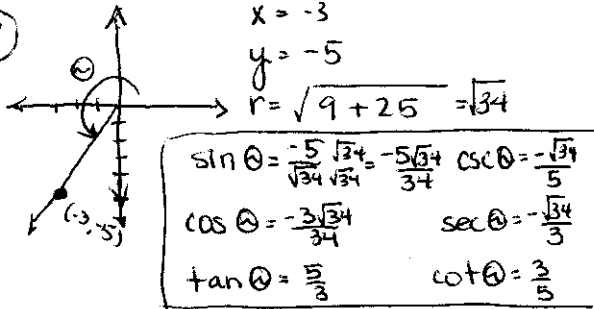 x = -3
y = -5
r = √9 + 25 = √34
θ
(-3, -5)
sin θ = -5/√34 √34/√34 = -5√34/34 csc θ = -√34/5
cos θ = -3√34/34 sec θ = -√34/3
tan θ = 5/3 cot θ = 3/5